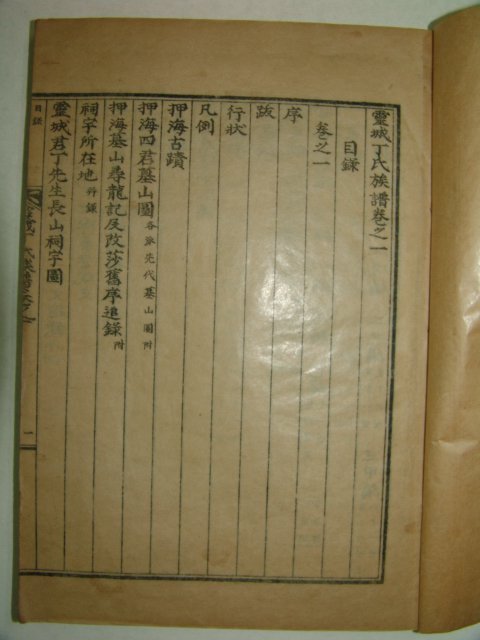 靈城丁氏族譜卷之一
目錄
卷之一
序
跋
行狀
凡例
押海古蹟
押海四君墓山圖 各派先代墓山圖附
押海墓山尋龍記及改莎舊序追錄附
祠宇所在地 幷錄
靈城君丁先生長山祠宇圖
目錄
一